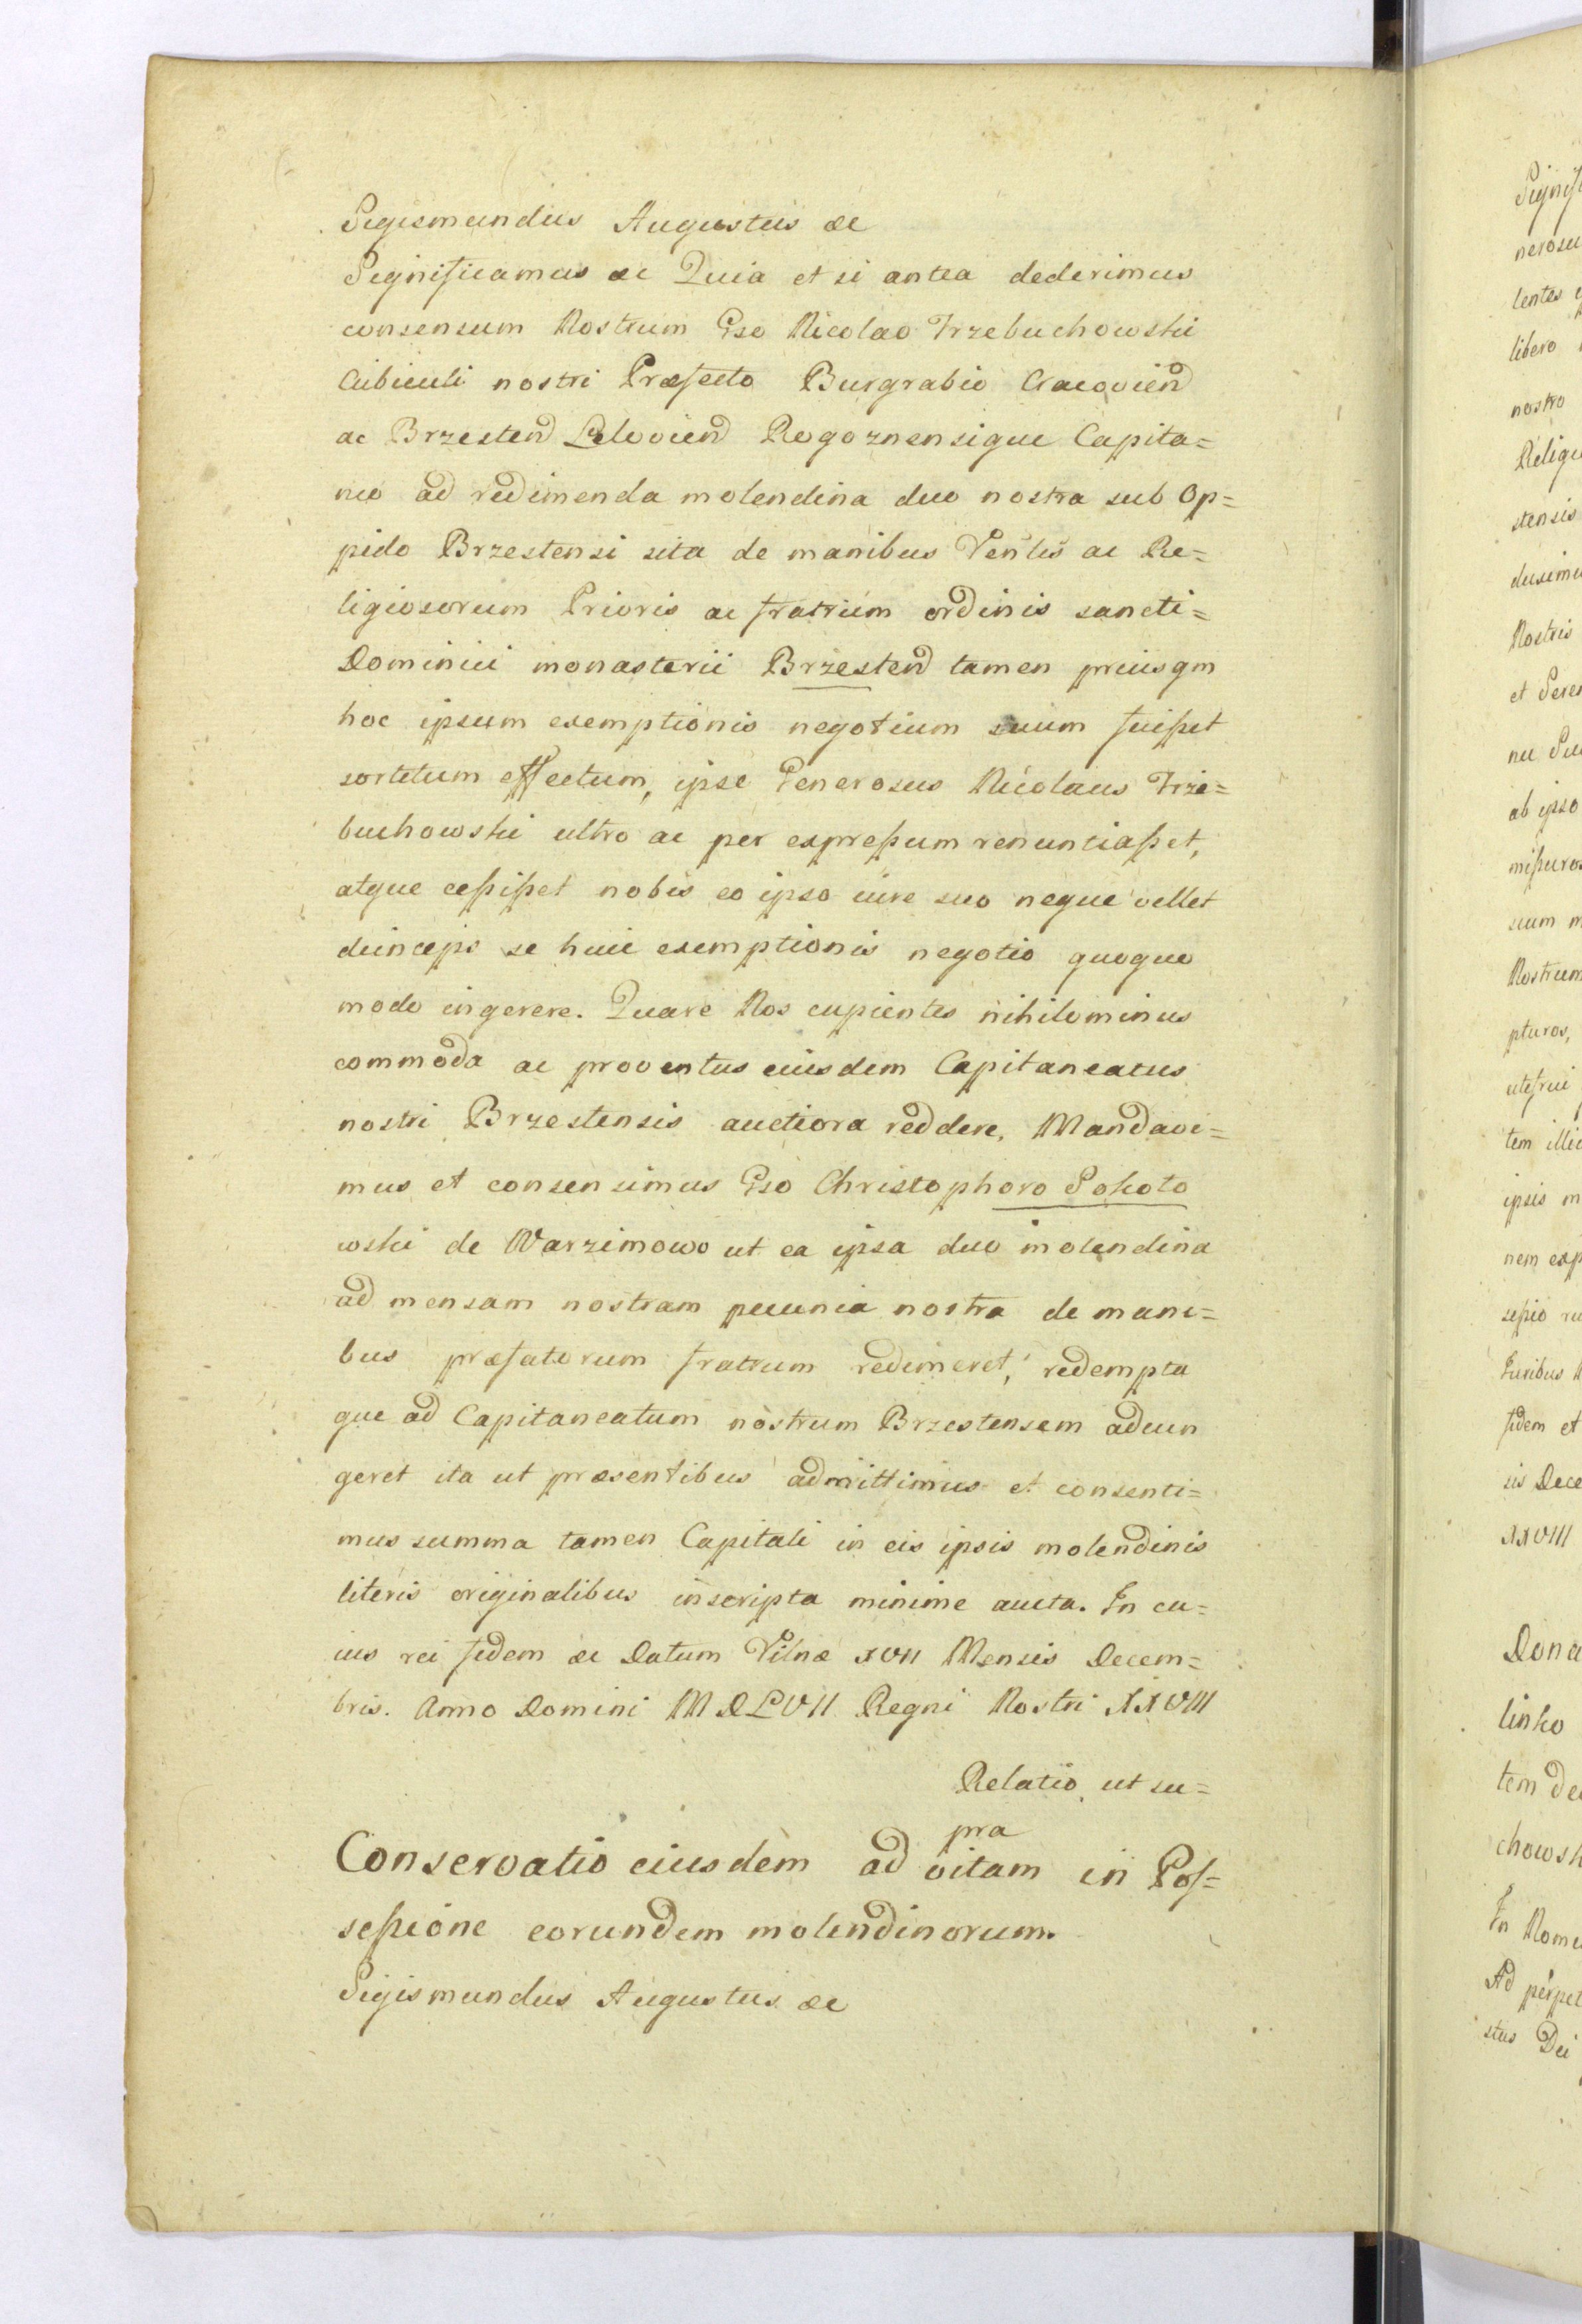 Sigismundus Augustus &c
Significamus &c Quia et si antea dederimus
consensum Nostrum Gso Nicolao Trzebuchowski
Cubiculi nostri Præfecto Burgrabio Cracovien
ac Brzesten Lelovien Rogoznensique Capita=
neo ad redimenda molendina duo nostra sub Op=
pido Brzestensi sita de manibus Venlis ac Re=
ligiosorum Prioris ac fratrum ordinis sancti=
Dominici monasterii Brzesten tamen priusqm
hoc ipsum exemptionis negotium suum fuisset
sortitum effectum, ipse Generosus Nicolaus Trze=
buchowski ultro ac per expressum renuntiasset,
atque cessisset nobis eo ipso iure suo neque vellet
deinceps se huic exemptionis negotio quoquo
modo ingerere. Quare Nos cupientes nihilominus
commoda ac proventus eiusdem Capitaneatus
nostri Brzestensis auctiora reddere, Mandavi=
mus et consensimus Gso Christophoro Sokoto
wski de Warzimowo ut ea ipsa duo molendina
ad mensam nostram pecunia nostra de mani=
bus præfatorum fratrum redimeret, redempta
que ad Capitaneatum nostrum Brzestensem adiun
geret ita ut præsentibus admittimus et consenti=
mus summa tamen Capitali in eis ipsis molendinis
literis originalibus inscripta minime aucta. In cu=
ius rei fidem &c Datum Vilnæ XVII Mensis Decem=
bris. Anno Domini MDLVII Regni Nostri XXVIII
Relatio ut su=
pra
Conservatio eiusdem ad vitam in Pos=
sessione eorundem molendinorum.
Sigismundus Augustus &c